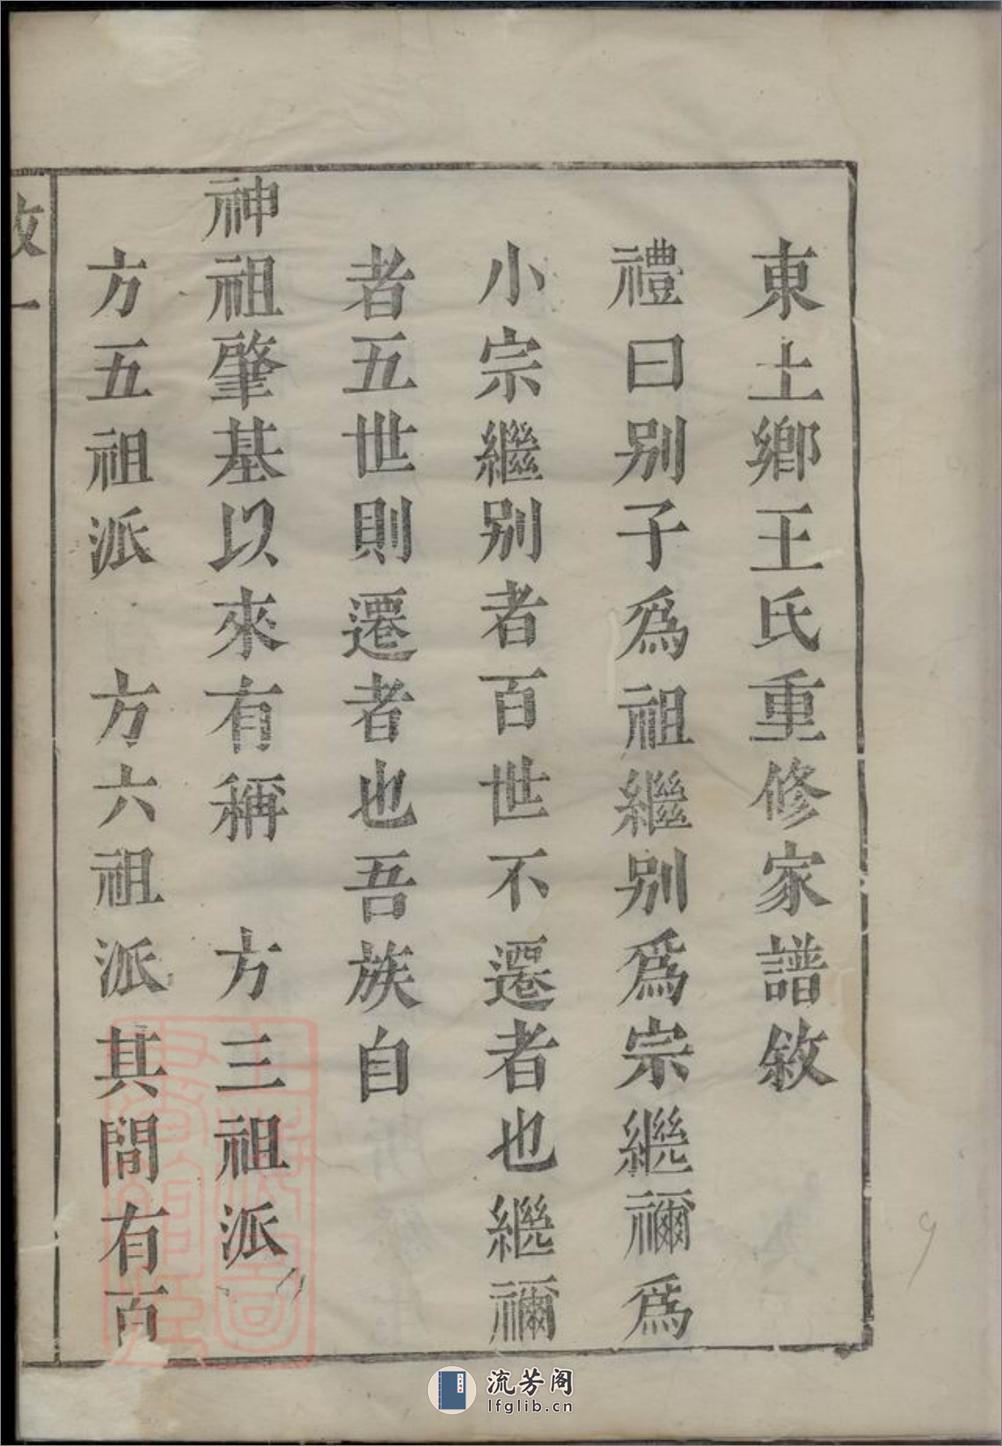 東土鄉王氏重修家譜敘
禮曰别子爲祖繼别爲宗繼禰爲
小宗繼别者百世不遷者也繼禰
者五世則遷者也吾族自
神祖肇基以來有稱　方三祖派
方五祖派　方六祖派其間有百
敘一
流芳阁
lfglib.cn